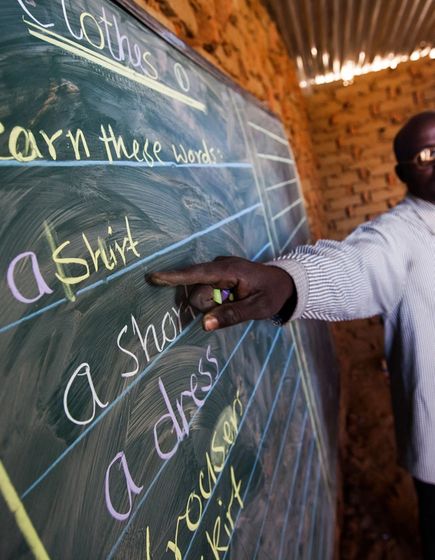 Clothes
earn these words:
a shirt
a shor
a dress
trousers
skirt